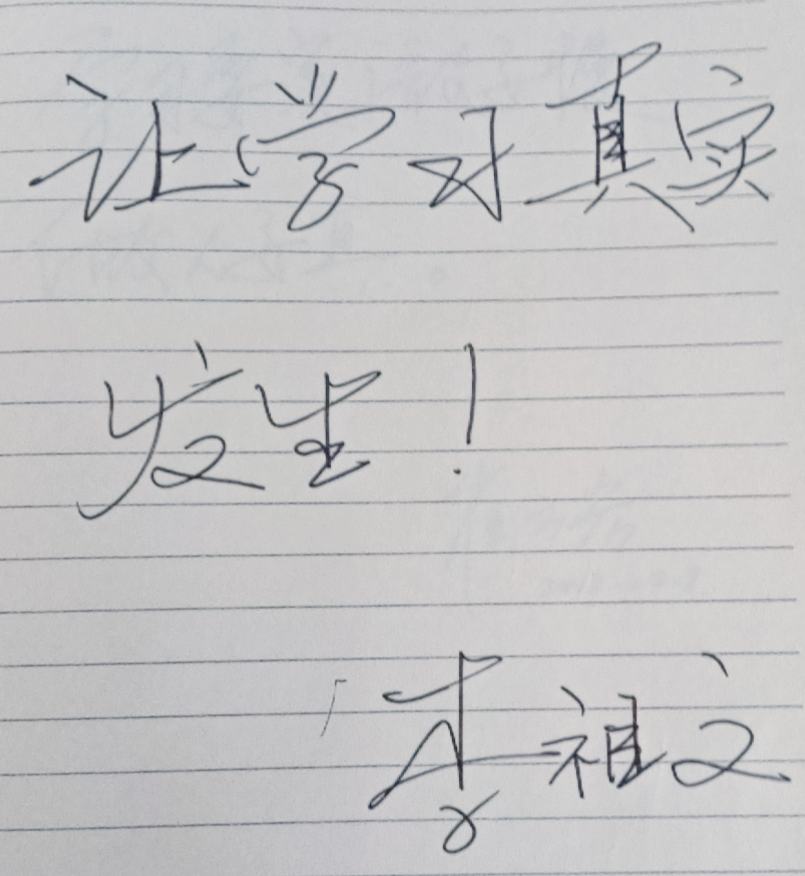 让学习真实
发生！
李祖文